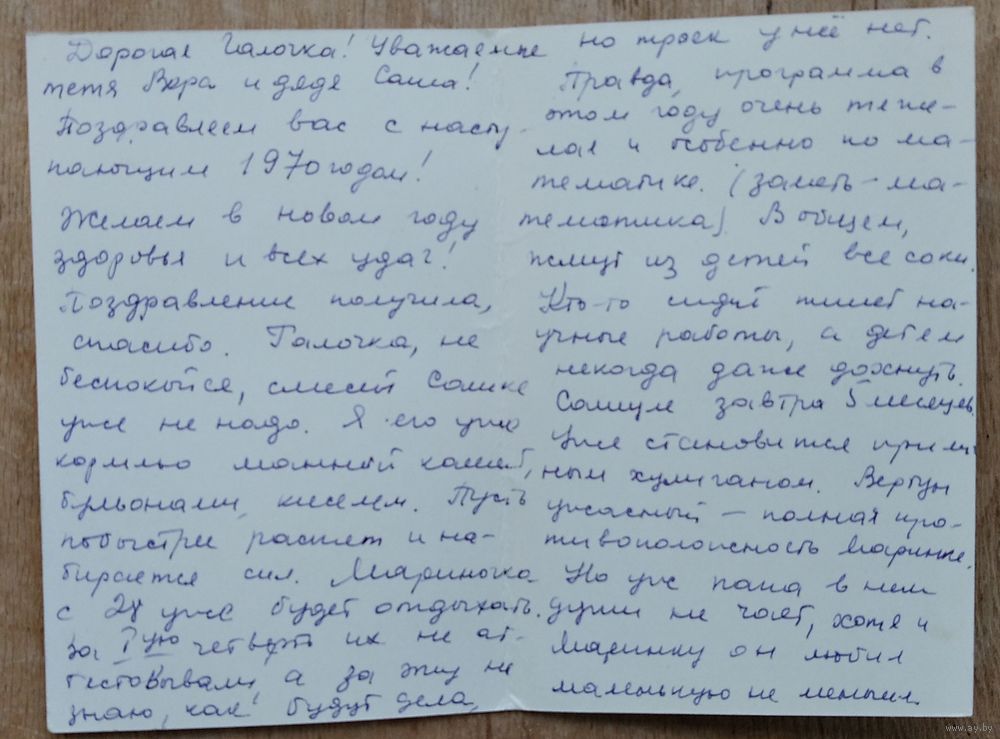 Дорогая Галочка! Уважаемые
тетя Вера и дядя Саша!
Поздравляем вас с насту-
пающим 1970 годом!
Желаем в новом году
здоровья и всех удач!
Поздравление получила,
спасибо. Галочка, не
беспокойся, смесей Сашке
уже не надо. Я его уже
кормлю манной кашей,
бульонами, киселем. Пусть
побыстрее растет и на-
бирается сил. Мариночка
с 28 уже будет отдыхать.
За Iую четверть их не ат-
тестовывали, а за эту не
знаю, как будут дела,
но троек у неё нет.
Правда, программа в
этом году очень тяже-
лая и особенно по ма-
тематике. (заметь - ма-
тематика). В общем,
жмут из детей все соки.
Кто-то сидит пишет на-
учные работы, а детям
некогда даже дохнуть.
Сашуле завтра 5 месяцев.
Уже становится прилич
ным хулиганом. Вертун
ужасный — полная про-
тивоположность Маринке.
Но уже папа в нем
души не чает, хотя и
Маринку он любил
маленькую не меньше.
www.ay.by